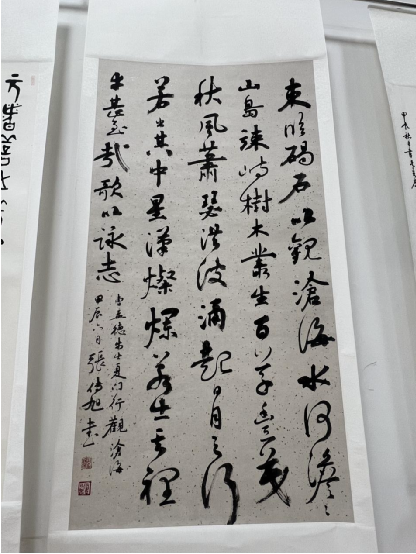 東臨碣石以觀滄海水何澹々
山島竦峙樹木叢生百草豐茂
秋風蕭瑟洪波涌起日月之行
若出其中星漢燦爛若出其裡
幸甚至哉歌以詠志
曹孟德步出夏門行觀滄海
甲辰六月張傳旭書